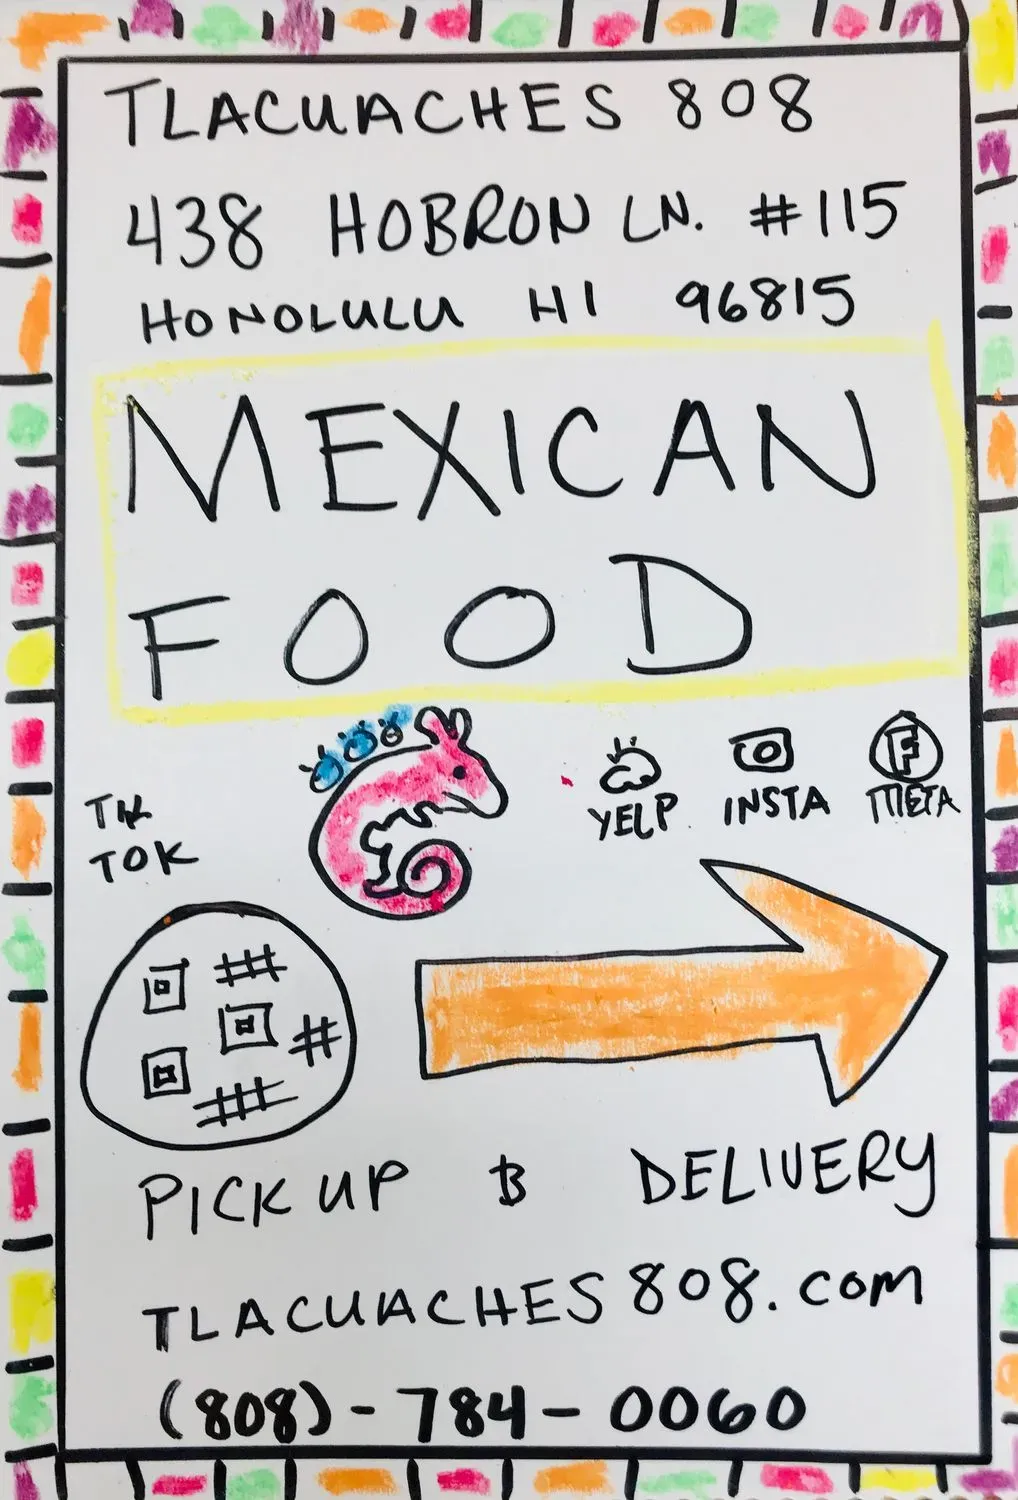 TLACUACHES 808
438 HOBRON LN. #115
HONOLULU HI 96815
MEXICAN
FOOD
TIK
TOK
YELP INSTA META
F
PICK UP & DELIVERY
TLACUACHES808.com
(808)-784-0060